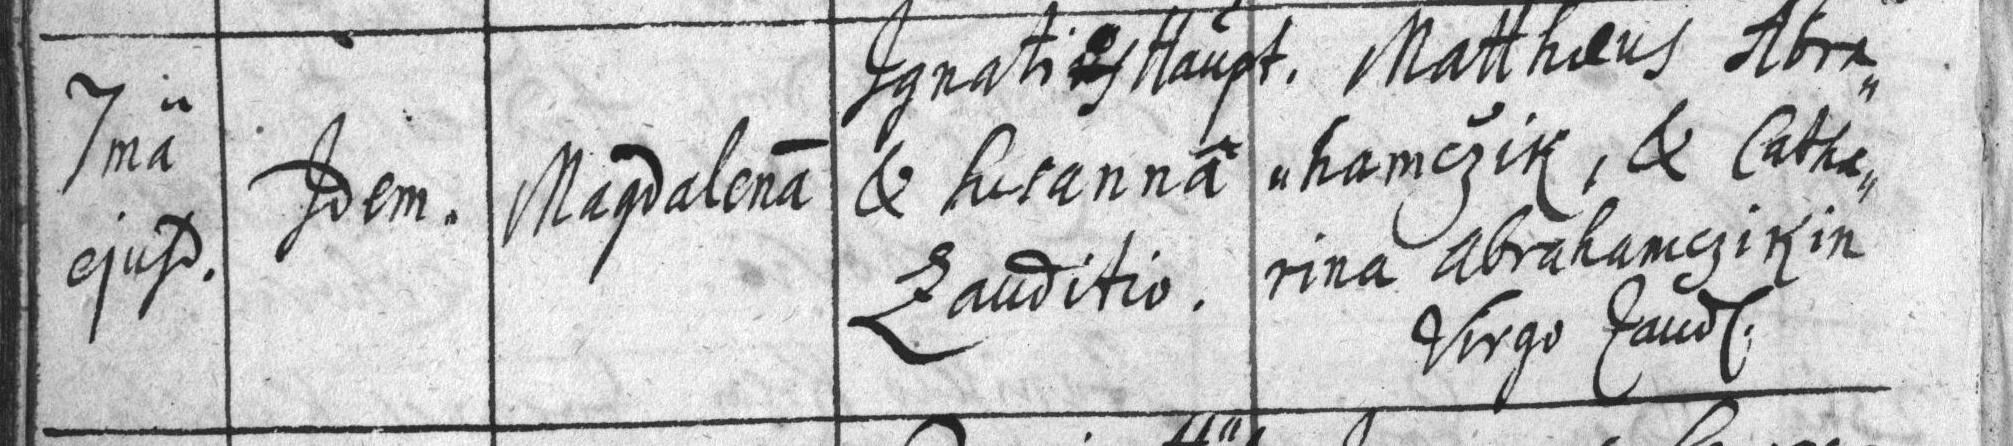 7mâ
ejusd.
Idem.
Magdalenā
Ignatius Haupt.
& Susannâ
Zauditio.
Matthæus Abra„
„hamczik, & Catha„
rina Abrahamczikin
Virgo Zaud: